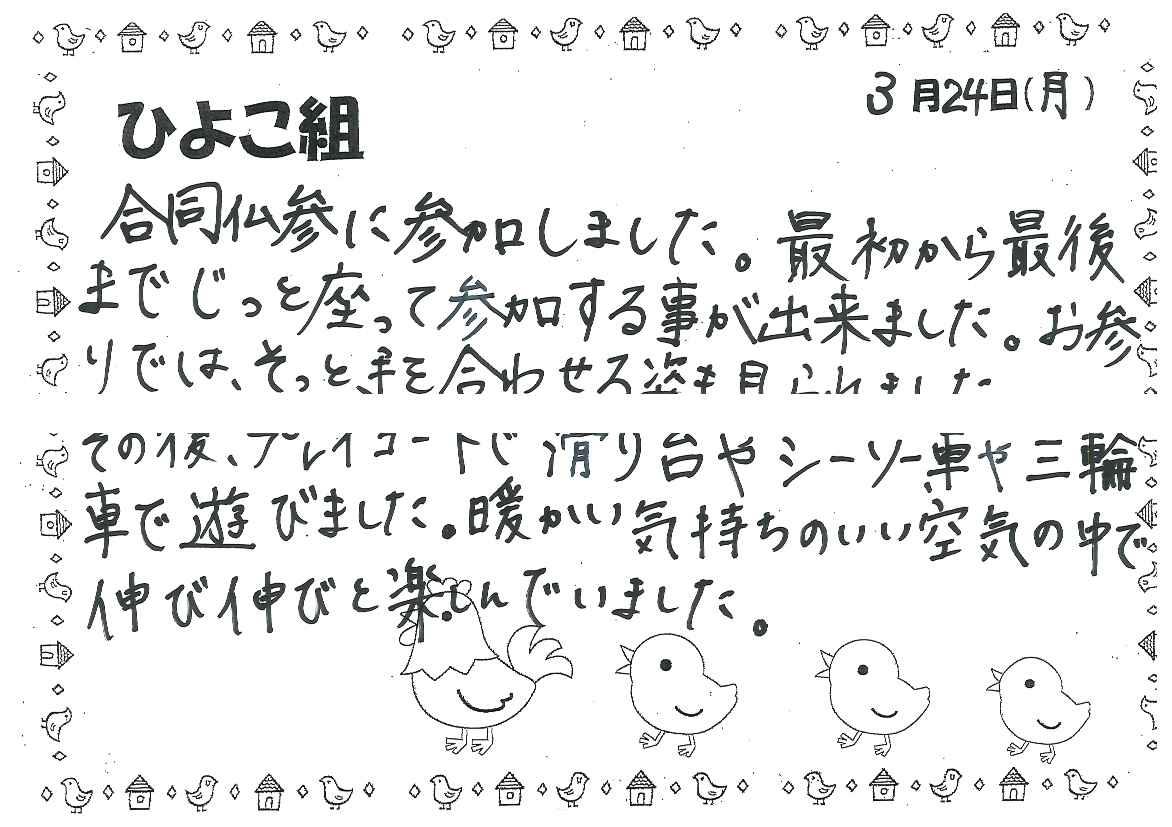 3月24日(月)
ひよこ組
合同仏参に参加しました。最初から最後
までじっと座って参加する事が出来ました。お参
りでは、そっと手を合わせる姿も見られました
その後、プレイコートで滑り台やシーソー車や三輪
車で遊びました。暖かい気持ちのいい空気の中で
伸び伸びと楽しんでいました。